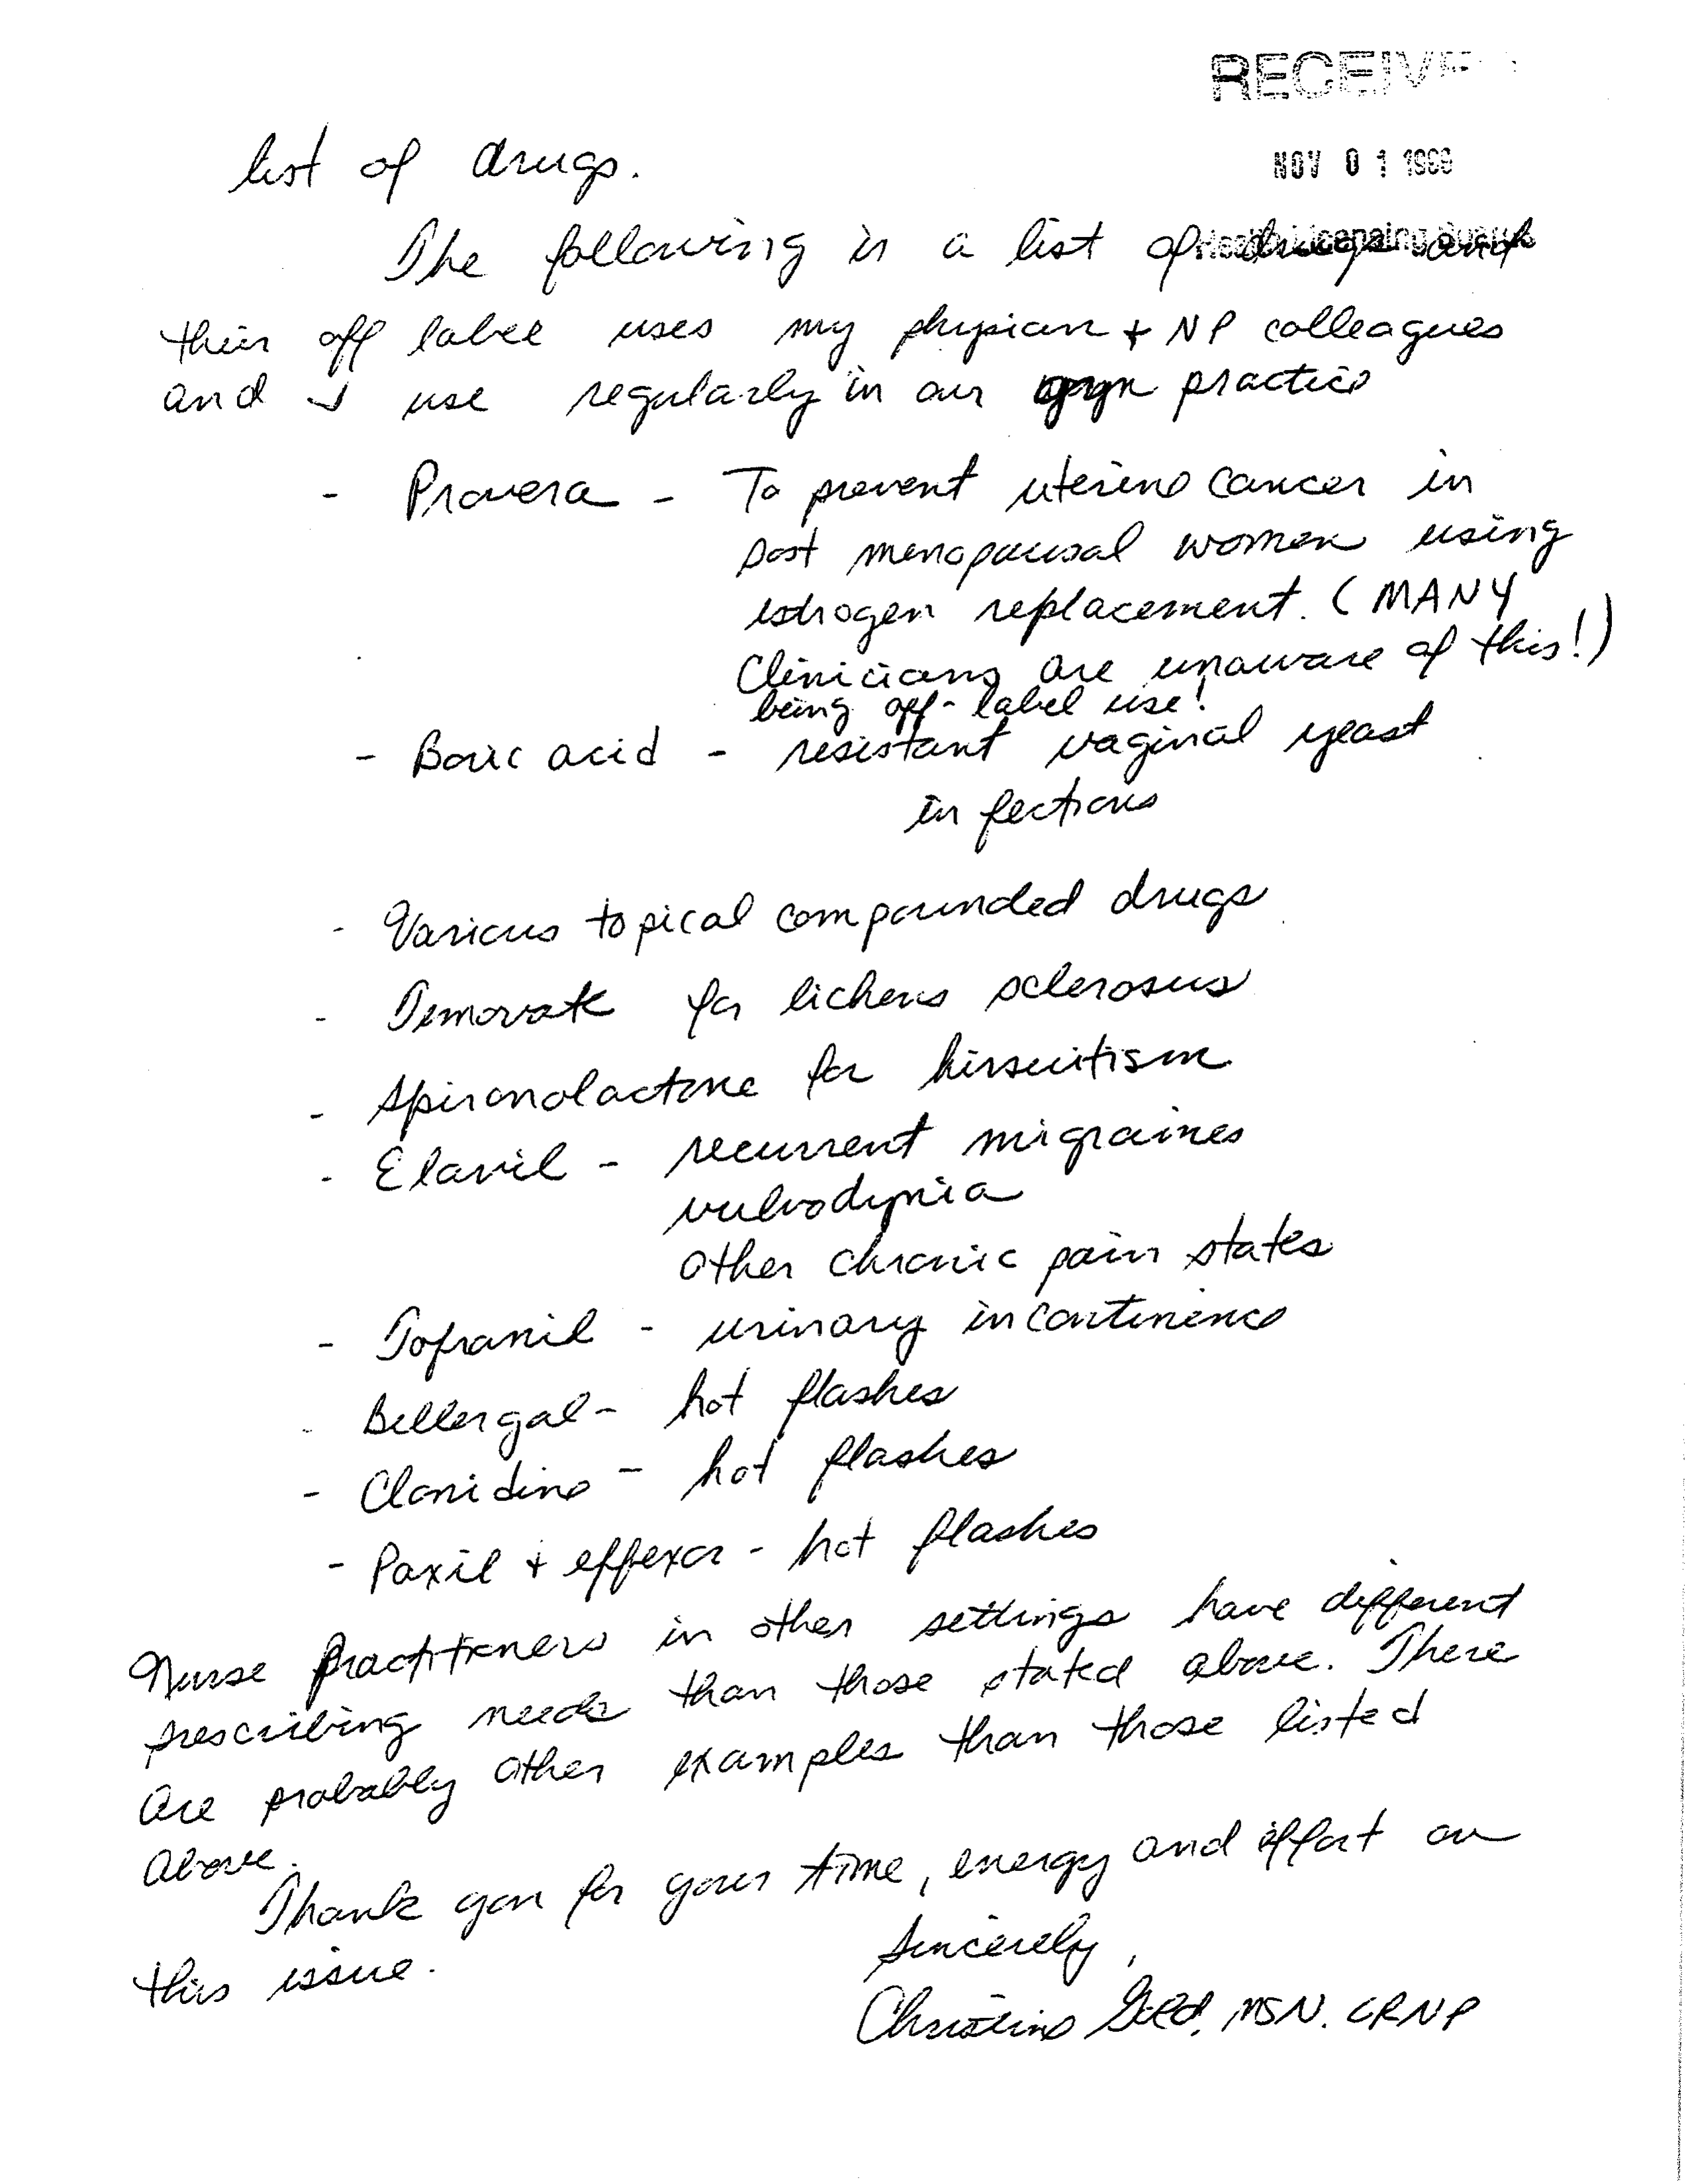 RECEIVE
NOV 0 1 1999
list of drugs.
Health Licensing Boards
The following is a list of drugs and
their off label uses my physian + NP colleagues
and I use regularly in our gyn practice
- Provera - To prevent uterine cancer in
post menopausal women using
estrogen replacement. (MANY
Clinicians are unaware of this!)
being off-label use!
- Boric acid - resistant vaginal yeast
infections
- Various topical compounded drugs
- Temovate for lichens sclerosus
- Spironolactone for hirsuitism
- Elavil - recurrent migraines
vulvodynia
other chronic pain states
- Tofranil - urinary incontinence
- Bellergal - hot flashes
- Clonidine - hot flashes
- Paxil + effexor - hot flashes
Nurse practitioners in other settings have different
prescribing needs than those stated above. There
are probably other examples than those listed
above.
Thank you for your time, energy and effort on
this issue.
Sincerely,
Christine MSN. CRNP